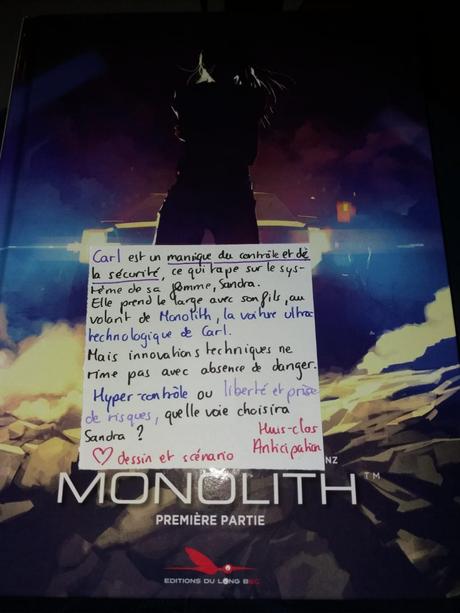 Carl est un maniaque du contrôle et de
la sécurité, ce qui tape sur le sys-
tème de sa femme, Sandra.
Elle prend le large avec son fils, au
volant de Monolith, la voiture ultra
technologique de Carl.
Mais innovations techniques ne
rime pas avec absence de danger.
Hyper-contrôle ou liberté et prise
de risques, quelle voie choisira
Sandra ?
Huis-clos
Anticipation
♡ dessin et scénario
NZ
MONOLITH™
PREMIÈRE PARTIE
EDITIONS DU LONG BEC